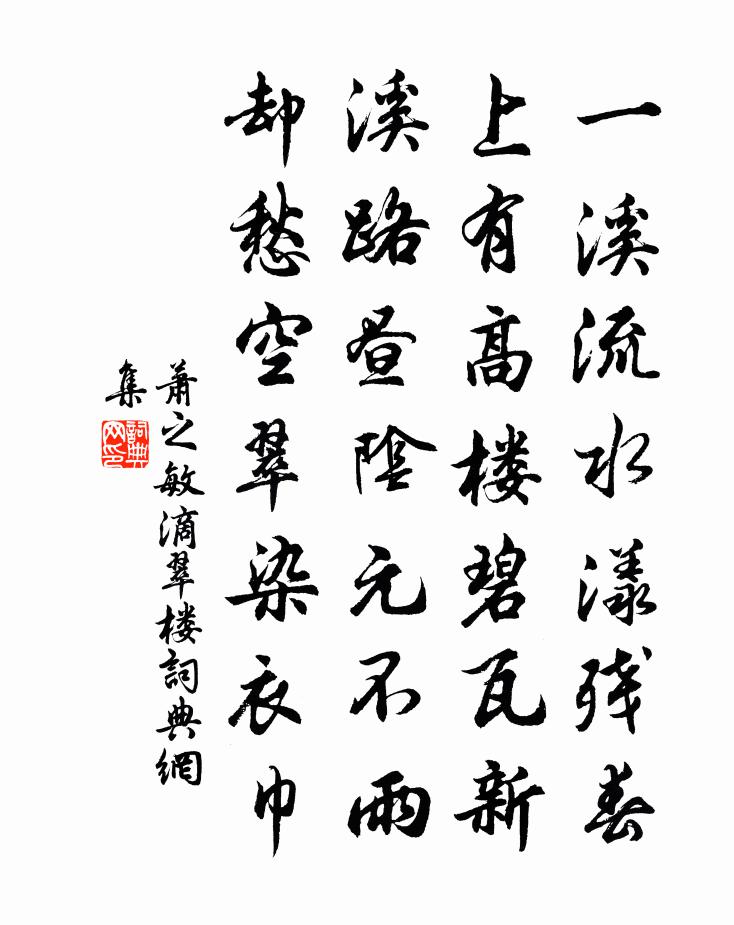 一溪流水漾残春
上有高楼碧瓦新
溪路昼陰元不雨
却愁空翠染衣巾
萧之敏滴翠楼詞典網
集
詞典
网印